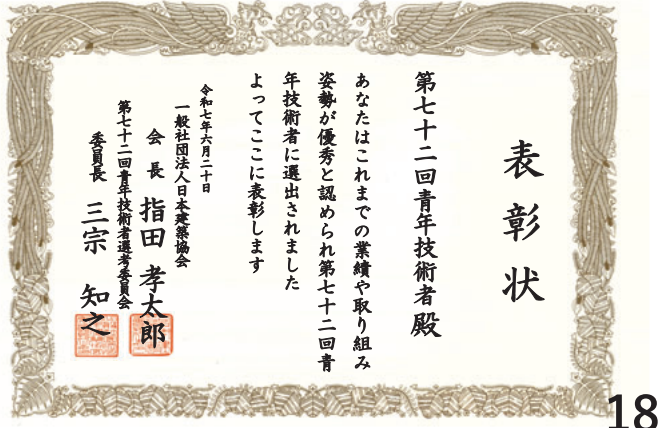 表彰状
第七十二回青年技術者殿
あなたはこれまでの業績や取り組み
姿勢が優秀と認められ第七十二回青
年技術者に選出されました
よってここに表彰します
令和七年六月二十日
一般社団法人日本建築協会
会長 指田 孝太郎
第七十二回青年技術者選考委員会
委員長 三宗 知之
18